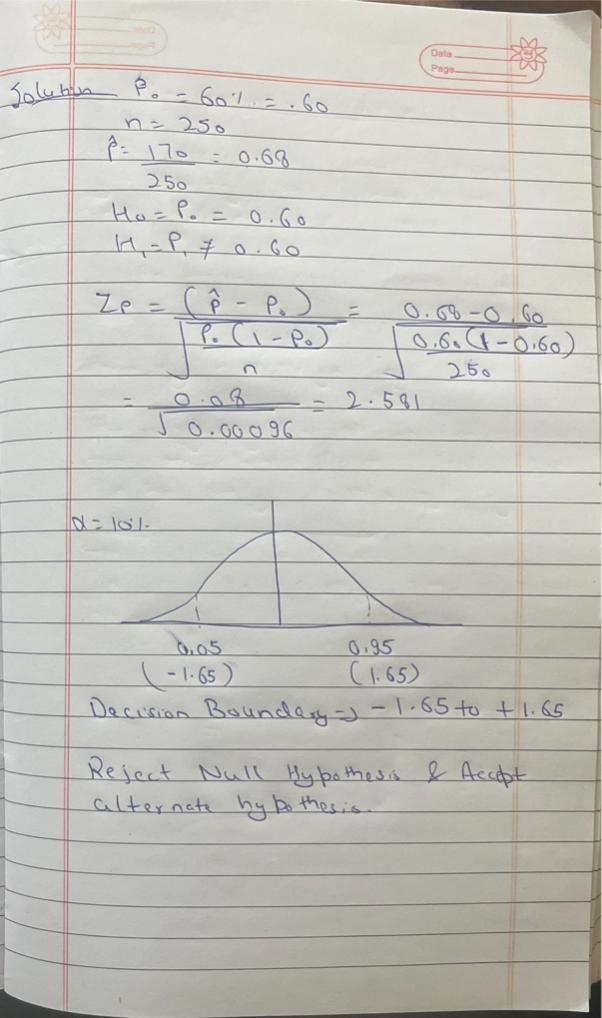 Date
Page
Solution P₀ = 60% = .60
n = 250
P̂ = 170/250 = 0.68
H₀ = P₀ = 0.60
H₁ = P₁ ≠ 0.60
Zp = (p̂ - P₀) / √(P₀(1-P₀)/n) = 0.68-0.60 / √(0.60(1-0.60)/250)
= 0.08 / √0.00096 = 2.581
α = 10%.
0.05 0.95
(-1.65) (1.65)
Decision Boundary => -1.65 to +1.65
Reject Null Hypothesis & Accept
alternate hypothesis.